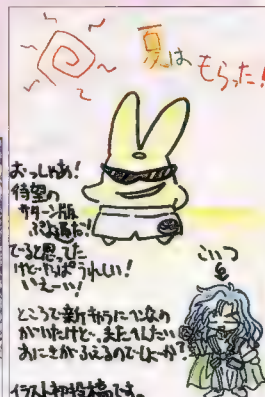 夏はもらった!
おっしゃあ!
待望の
サターン版
ぷよ通だ!
でると思ってた
けどやっぱうれしい!
いえーい!
こいつ
も
ところで新キャラに
また
おにさきがふえるのでしょーか?
イラスト初投稿です。